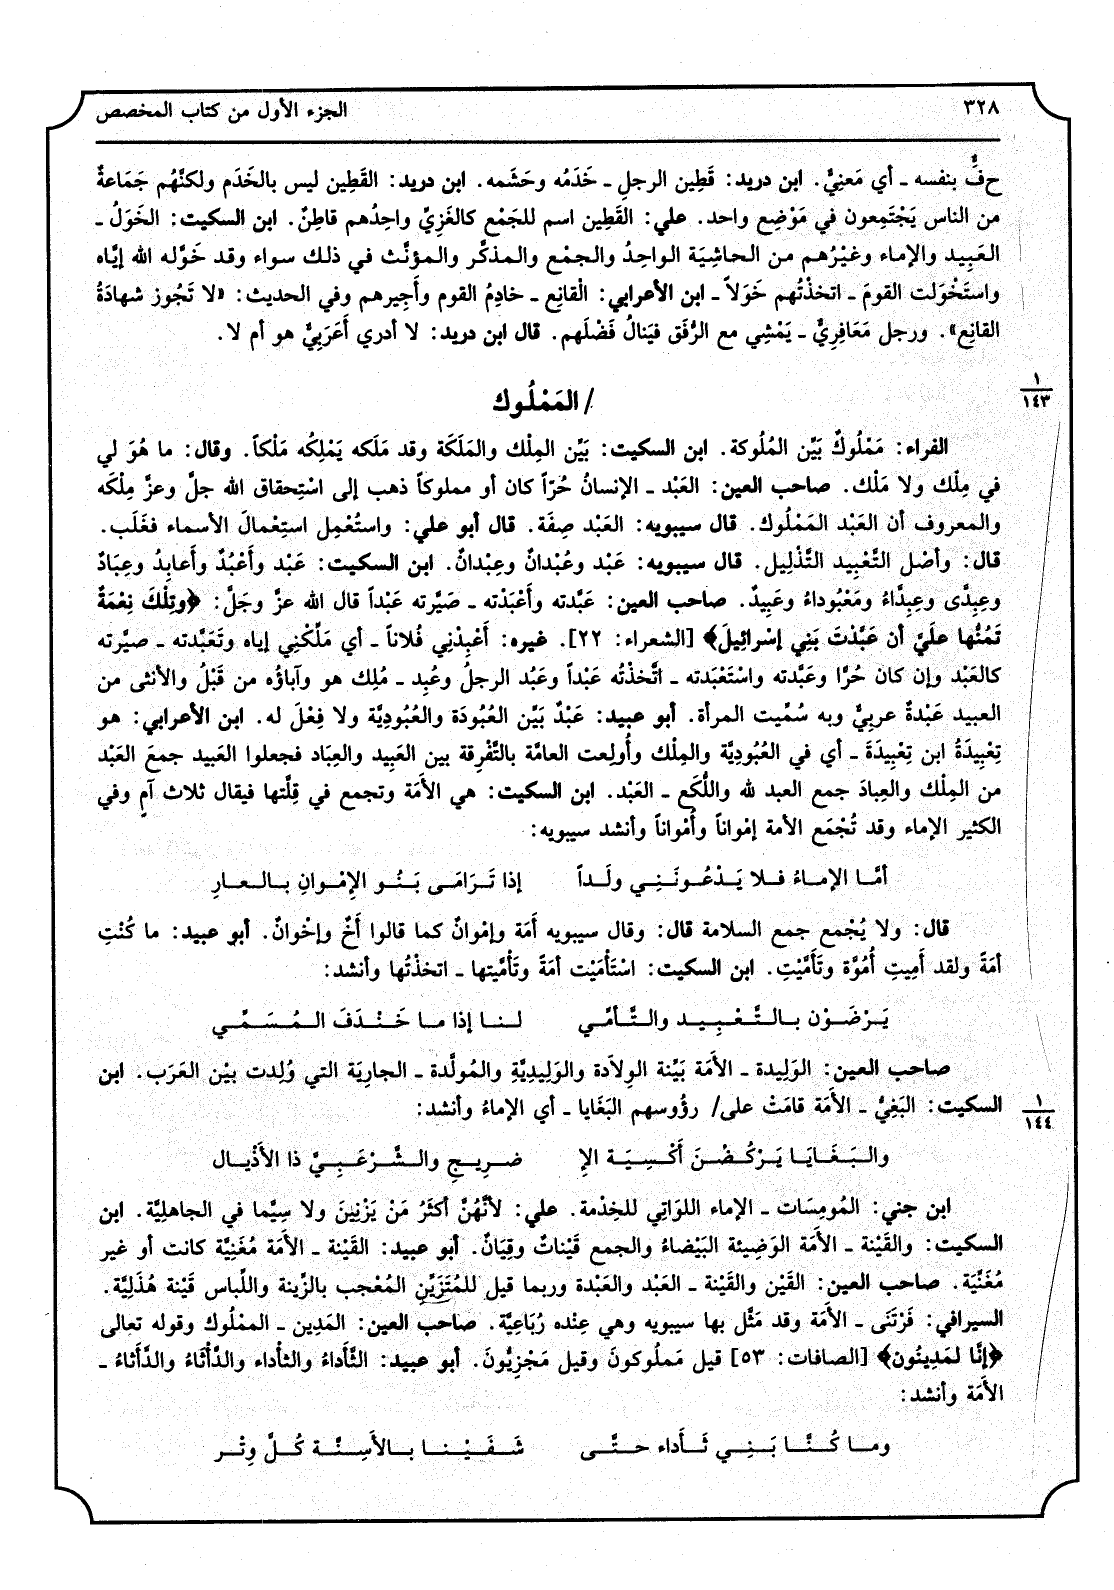 ٣٢٨ الجزء الأول من كتاب المخصص
حفٌّ بنفسه ـ أي مَعنِيٌّ. ابن دريد: قَطِين الرجلِ ـ خَدَمُه وحَشَمه. ابن دريد: القَطِين ليس بالخَدَم ولكنَّهُم جَمَاعةٌ
من الناس يَجْتَمِعون في مَوْضِع واحد. علي: القَطِين اسم للجَمْع كالغَزِيِّ واحِدُهم قاطِنٌ. ابن السكيت: الخَوَلُ ـ
العَبِيد والإماء وغيْرُهم من الحاشِيَة الواحِدُ والجمْع والمذكَّر والمؤنَّث في ذلك سواء وقد خَوَّله الله إيَّاه
واستَخْوَلت القومَ ـ اتخذْتُهم خَوَلاً ـ ابن الأعرابي: الْقانِع ـ خادِمُ القوم وأَجِيرهم وفي الحديث: «لا تَجُوز شهادَةُ
القانِع». ورجل مَعَافِرِيٌّ ـ يَمْشِي مع الرُّفَق فيَنالُ فَضْلَهم. قال ابن دريد: لا أدري أَعَرَبِيٌّ هو أم لا.
/ المَمْلُوك
١
١٤٣
الفراء: مَمْلُوكٌ بَيِّن المُلُوكة. ابن السكيت: بَيِّن المِلْك والمَلَكَة وقد مَلَكه يَمْلِكُه مَلْكاً. وقال: ما هُوَ لي
في مِلْك ولا مَلْك. صاحب العين: العَبْد ـ الإنسانُ حُرّاً كان أو مملوكاً ذهب إلى اسْتِحقاق الله جلَّ وعزَّ مِلْكَه
والمعروف أن العَبْد المَمْلُوك. قال سيبويه: العَبْد صِفَة. قال أبو علي: واستُعْمِل استِعْمالَ الأسماء فغَلَب.
قال: وأصْل التَّعْبِيد التَّذْلِيل. قال سيبويه: عَبْد وعُبْدانٌ وعِبْدانٌ. ابن السكيت: عَبْد وأَعْبُدٌ وأَعابِدُ وعِبَادٌ
وعِبِدَّى وعِبِدَّاءُ ومَعْبُوداءُ وعَبِيدٌ. صاحب العين: عَبَّدته وأَعْبَدْته ـ صَيَّرته عَبْداً قال الله عزَّ وجَلَّ: ﴿وتِلْكَ نِعْمَةٌ
تَمُنُّها علَيَّ أن عَبَّدْتَ بَنِي إسْرائِيلَ﴾ [الشعراء: ٢٢]. غيره: أَعْبِدْنِي فُلاناً ـ أي مَلِّكْنِي إياه وتَعَبَّدته ـ صيَّرته
كالعَبْد وإن كان حُرًّا وعَبَّدته واسْتَعْبَدته ـ اتَّخذْتُه عَبْداً وعَبُد الرجلُ وعُبِد ـ مُلِك هو وآباؤُه من قَبْلُ والأنثى من
العبيد عَبْدةٌ عربِيٌّ وبه سُمِّيت المرأة. أبو عبيد: عَبْدٌ بَيِّن العُبُودَة والعُبُودِيَّة ولا فِعْلَ له. ابن الأعرابي: هو
تِعْبِيدَةُ ابن تِعْبِيدَةَ ـ أي في العُبُودِيَّة والمِلْك وأُولِعت العامَّة بالتَّفْرِقة بين العَبِيد والعِبَاد فجعلوا العَبيد جمعَ العَبْد
من المِلْك والعِبادَ جمع العبد لله واللُّكَع ـ العَبْد. ابن السكيت: هي الأمَة وتجمع في قِلَّتها فيقال ثلاث آمٍ وفي
الكثير الإماء وقد تُجْمَع الأمة إمْواناً وأُمْواناً وأنشد سيبويه:
أمَّا الإماءُ فلا يَدْعُونَنِي ولَداً إذا تَرَامَى بَنُو الإمْوانِ بالعارِ
قال: ولا يُجْمع جمع السلامة قال: وقال سيبويه أَمَة وإمْوانٌ كما قالوا أَخٌ وإخْوانٌ. أبو عبيد: ما كُنْتِ
أمَةً ولقد أَمِيتِ أُمُوَّة وتَأَمَّيْتِ. ابن السكيت: اسْتَأْمَيْت أمَةً وتَأَمَّيتها ـ اتخذْتُها وأنشد:
يَرْضَوْن بالتَّعْبِيد والتَّأمِّي لنا إذا ما خَنْدَفَ المُسَمِّي
صاحب العين: الوَلِيدة ـ الأمَة بَيِّنة الوِلاَدة والوَلِيدِيَّةِ والمُولَّدة ـ الجارِيَة التي وُلِدت بيْن العَرَب. ابن
السكيت: البَغِيُّ ـ الأمَة قامَتْ على/ رؤوسهم البَغَايا ـ أي الإماءُ وأنشد:
١
١٤٤
والبَغَايَا يَرْكُضْنَ أَكْسِيَة الإِ ضرِيجِ والشَّرْعَبِيَّ ذا الأَذْيال
ابن جني: المُومِسَات ـ الإماء اللوَاتِي للخِدْمة. علي: لأنَّهُنَّ أكثَرُ مَنْ يَزْنِينَ ولا سِيَّما في الجاهلِيَّة. ابن
السكيت: والقَيْنة ـ الأمَة الوَضِيئة البَيْضاءُ والجمع قَيْناتٌ وقِيَانٌ. أبو عبيد: القَيْنة ـ الأمَة مُغَنِّيَة كانت أو غير
مُغَنِّيَة. صاحب العين: القَيْن والقَيْنة ـ العَبْد والعَبْدة وربما قيل للمُتَزَيِّنِ المُعْجب بالزِّينة واللِّباس قَيْنة هُذَلِيَّة.
السيرافي: فَرْتَنَى ـ الأمَة وقد مَثَّل بها سيبويه وهي عِنْده رُبَاعِيَّة. صاحب العين: المَدِين ـ الممْلُوك وقوله تعالى
﴿إنَّا لمَدِينُون﴾ [الصافات: ٥٣] قيل مَملُوكونَ وقيل مَجْزِيُّونَ. أبو عبيد: الثَّأَداءُ والثأْداء والدَّأْثَاءُ والدَّأَثاءُ ـ
الأمَة وأنشد:
وما كُنَّا بَنِي ثَأَداء حتَّى شَفَيْنا بالأَسِنَّة كُلَّ وِتْر